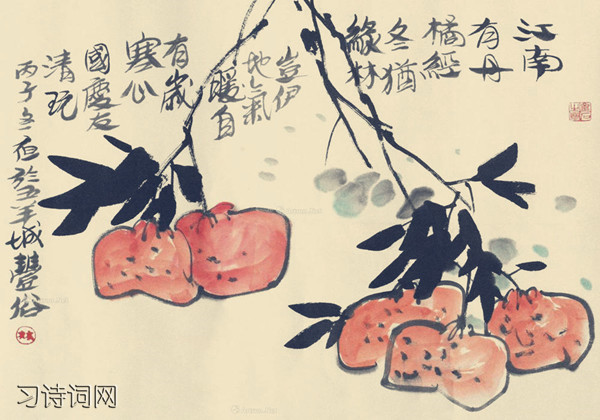 江南
有丹
橘經
冬猶
綠林
豈伊
地氣
暖自
有歲
寒心
國慶友
清玩
丙子冬於五羊城豐俗
习诗词网